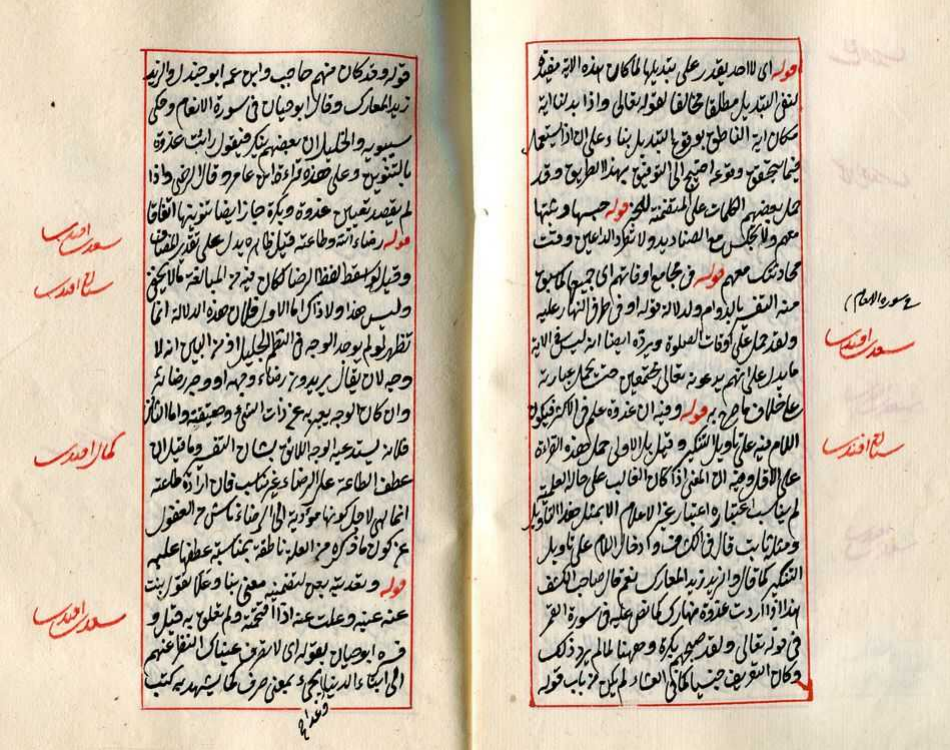 قوله اى لا احد يقدر على تبديلها لما كان هذه الاية مفيدة
لنفى التبديل مطلقا مخالفا لقوله تعالى واذا بدلنا اية
مكان اية الناطق بوقوع التبديل بناء على ان اذا يستعمل
فيما يتحقق وقوعه احتيج الى التوفيق بهذا الطريق وقد
حمل بعضهم الكلمات على المتضمنة للخبر قوله حبسها وثبتها
معهم ولا تجلس مع الصناديد ولا تطرد الداعين وقت
محادثتك معهم قوله فى مجامع اوقاتهم اى جميعها كما سبق
منه التفسير بالدوام ولدلالة قوله او فى طرفى النهار عليه
ولقد حمل على اوقات الصلوة ويرده ايضا انه ليس فى الاية
ما يدل على انهم يدعونه تعالى مجتمعين حتى يحمل عبارته
على خلاف ما صرح به قوله وفيه ان غدوة علم فى الاكثر فيكون
اللام فيه على تأويل التنكير وقيل بل الاولى حمل هذه القراءة
على الاقل وفيه ان المعنى اذا كان الغالب على حال العلمية
لم يناسب اعتبار
ومثله ثابت قال فى الكشف وادخال اللام على تأويل
التنكير كما قال والزيد زيد المعارك نعم قال صاحب الكشف
هذا اذا اردت غدوة نهارك كما نص عليه فى سورة القمر
فى قوله تعالى ولقد صبحهم بكرة وههنا لما لم يرد ذلك
وكان التعريف جنسيا كما فى العشاء لم يكن من باب قوله
فى سورة الانعام
سعدى افندى
سنان افندى
قوله وقد كان منهم حاجب وابن عمه ابو جندل والزيد
زيد المعارك وقال ابو حيان فى سورة الانعام وحكى
سيبويه والخليل ان بعضهم ينكر فيقول رأيت غدوة
بالتنوين وعلى هذه قراءة ابن عامر وقال الرضى واذا
لم يقصد تعيين غدوة وبكرة جاز ايضا تنوينها اتفاقا
قوله رضاء الله وطاعته قيل ظاهره يدل على تقدير المضاف
وقيل لو اسقط لفظ الرضا لكان فيه من المبالغة ما لا يخفى
وليس هذا ولا ذاك اما الاول فلان هذه الدلالة انما
تظهر لو لم يوجد الوجه فى النظم الجليل اذ من البين انه لا
وجه لان يقال يريدون رضاء وجهه او وجه رضائه
وان كان الوجه يعبر به عن ذات الشئ وحقيقته واما الثانى
فلانه يستدعيه الوجه اللائق بشان التفسير وما قيل ان
عطف الطاعة على الرضاء غير مناسب فان ارادة طاعته
انما هى لاجل كونها مؤدية الى الرضاء ناش من الغفول
عن كون ما ذكره من العلة ناطقة بمناسبة عطفها عليه
قوله وتعديته بعن لتضمينه معنى نبا وعلا تقول نبت
عنه عينه وعلت عنه اذا اقتحمته ولم تعلق به قيل و
فسره ابو حيان بقوله اى لا تصرف عيناك النظر عنهم
الى ابناء الدنيا بمعنى صرف كما يشهد به كتب
سعدى افندى
سنان افندى
كمال افندى
سعدى افندى